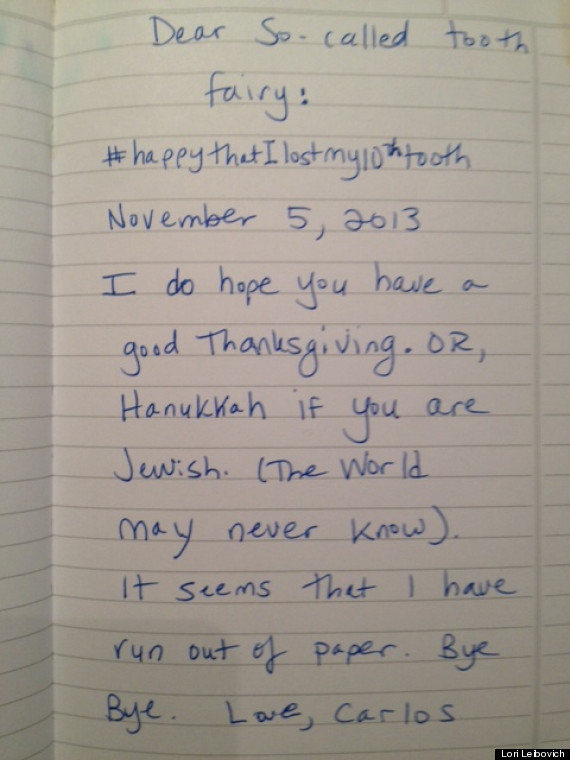 Dear So-called tooth
fairy:
#happythatIlostmy10thtooth
November 5, 2013
I do hope you have a
good Thanksgiving. OR,
Hanukkah if you are
Jewish. (The World
may never know).
It seems that I have
run out of paper. Bye
Bye. Love, Carlos
Lori Leibovich